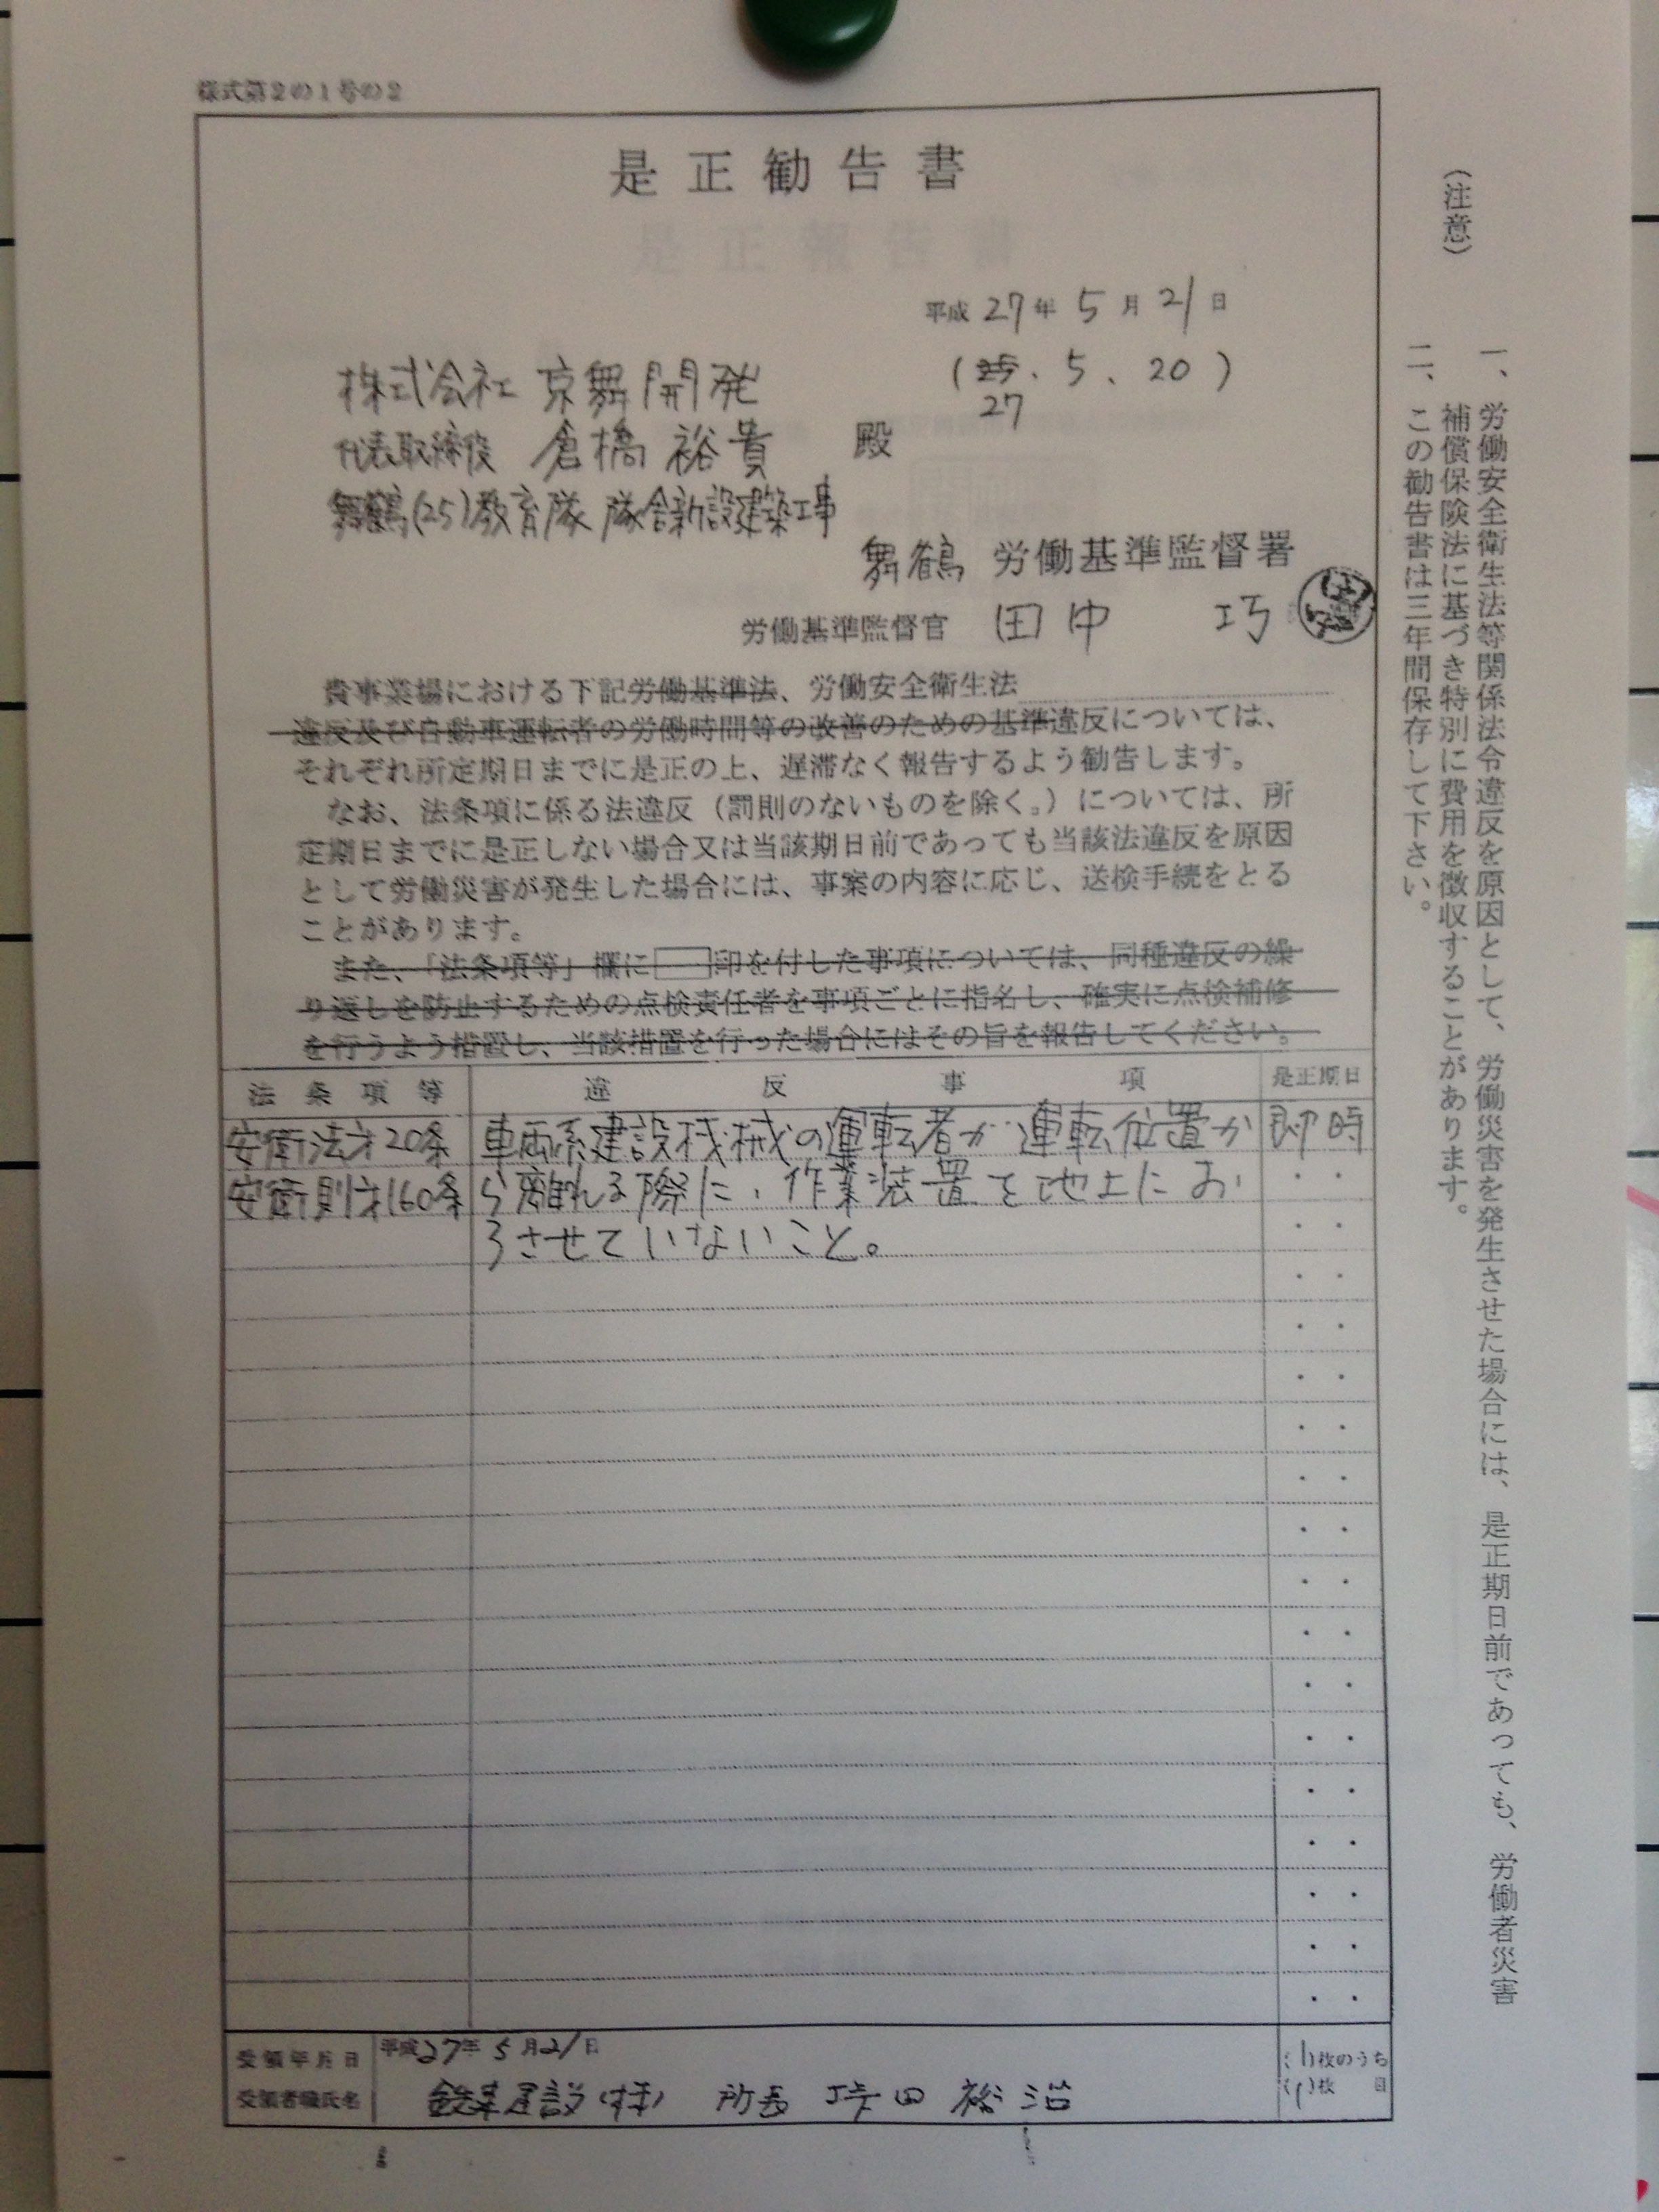 様式第2の1号の2
是正勧告書
平成27年5月21日
(25.5.20)
27
株式会社 京舞開発
代表取締役 倉橋 裕貴 殿
舞鶴(25)教育隊 隊舎新設建築工事
舞鶴 労働基準監督署
労働基準監督官 田中 巧
貴事業場における下記労働基準法、労働安全衛生法
違反及び自動車運転者の労働時間等の改善のための基準違反については、
それぞれ所定期日までに是正の上、遅滞なく報告するよう勧告します。
なお、法条項に係る法違反(罰則のないものを除く。)については、所
定期日までに是正しない場合又は当該期日前であっても当該法違反を原因
として労働災害が発生した場合には、事案の内容に応じ、送検手続をとる
ことがあります。
また、「法条項等」欄に□印を付した事項については、同種違反の繰
り返しを防止するための点検責任者を事項ごとに指名し、確実に点検補修
を行うよう措置し、当該措置を行った場合にはその旨を報告してください。
法条項等 違反事項 是正期日
安衛法才20条 車両系建設機械の運転者が運転位置か 即時
安衛則才160条 ら離れる際に、作業装置を地上にお
ろさせていないこと。
受領年月日 平成27年5月21日
受領者職氏名 建設(株) 所長 田 裕治
(1)枚のうち
(1)枚目
(注意)
一、労働安全衛生法等関係法令違反を原因として、労働災害を発生させた場合には、是正期日前であっても、労働者災害
補償保険法に基づき特別に費用を徴収することがあります。
二、この勧告書は三年間保存して下さい。